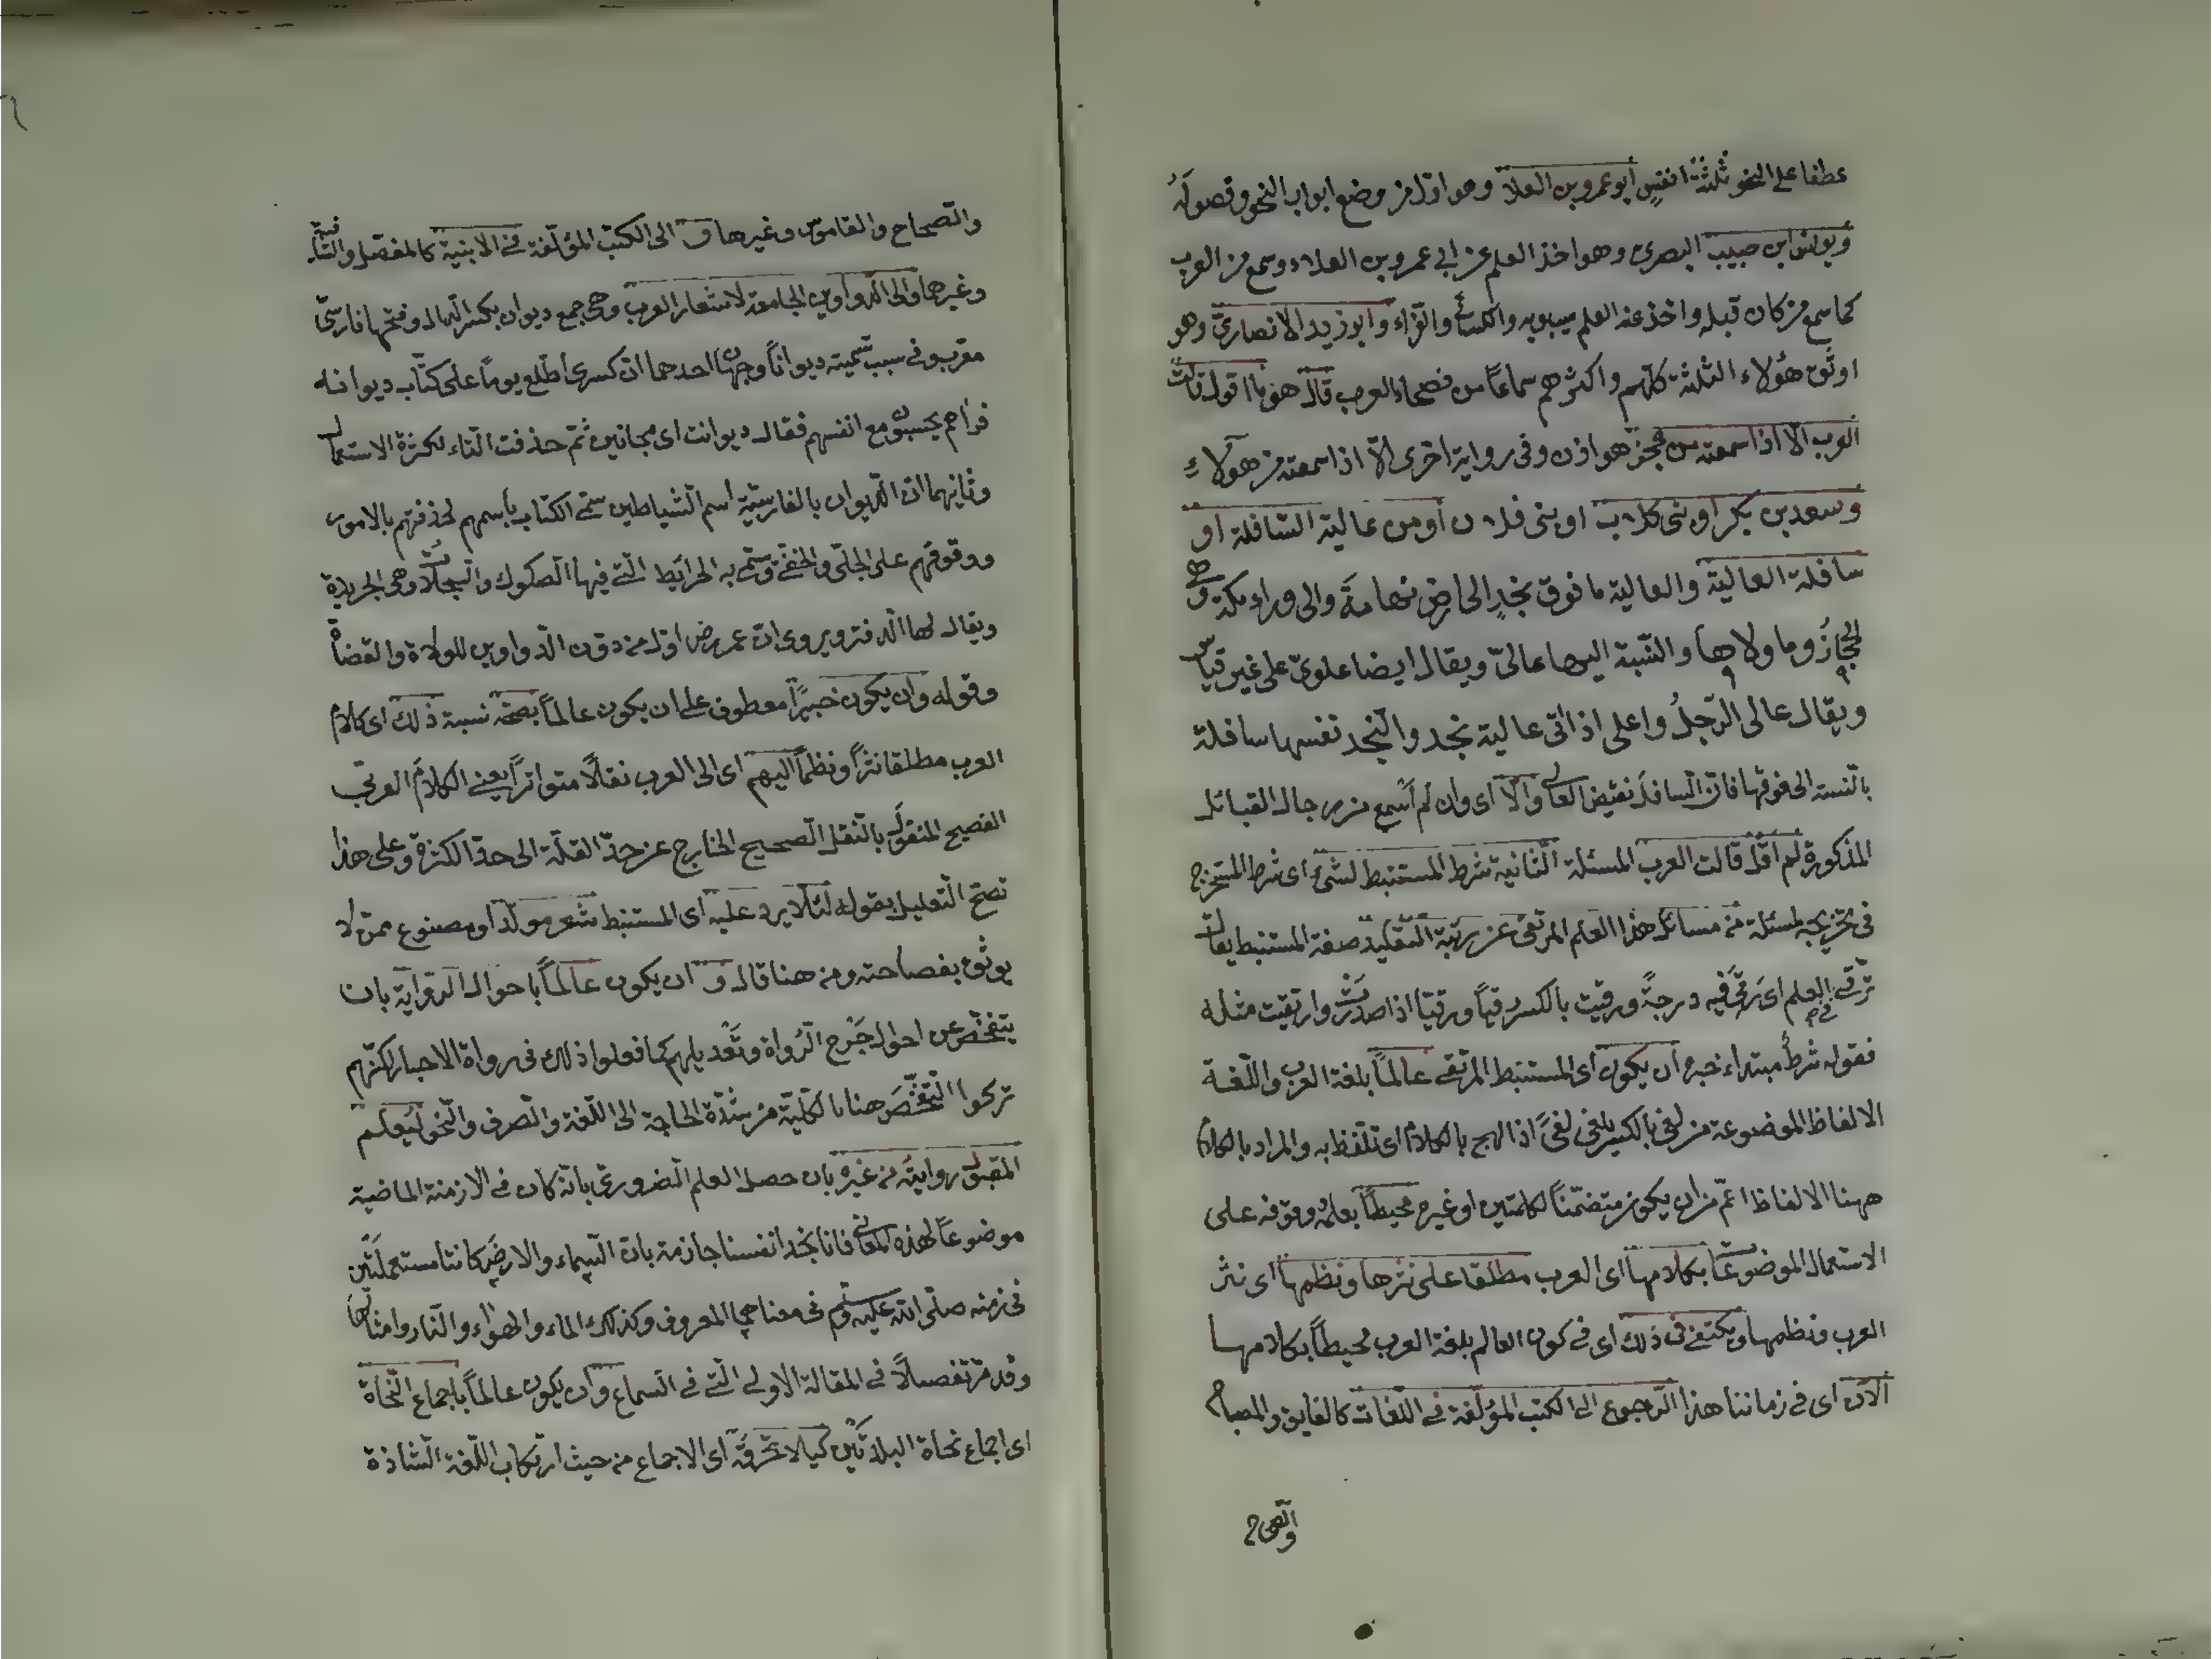 عطفا على النحو ثلثة انفس ابو عمرو بن العلا وهو اول من وضع ابواب النحو وفصوله
ويونس ابن حبيب البصرى وهو اخذ العلم عن ابى عمرو بن العلاء وسمع من العرب
كما سمع من كان قبله واخذ عنه العلم سيبويه والكسائى والفراء وابو زيد الانصارى وهو
اوثق هؤلاء الثلثة كلهم واكثرهم سماعا من فصحاء العرب قال هو ما اقول قالت
العرب الا اذا سمعته من عجز هوازن وفى رواية اخرى الا اذا سمعته من هؤلاء
وسعد بن بكر او بنى كلاب او بنى فلان او من عالية السافلة او
سافلة العالية والعالية ما فوق نجد الى ارض تهامة والى وراء مكة وهى
الحجاز وما ولاها والنسبة اليها عالىّ ويقال ايضا علوىّ على غير قياس
ويقال عالى الرجل واعلى اذا اتى عالية نجد والنجد نفسها سافلة
بالنسبة الى فوقها فان السافل نقيض العالى والا اى وان لم اسمع من رجال القبائل
المذكورة لم اقل قالت العرب المسئلة الثانية شرط المستنبط لشئ اى شرط المستخرج
فى تخريجه لمسئلة من مسائل هذا العلم المرتقى عن رتبة التقليد صفة المستنبط يقال
ترقى فى العلم اى رقى فيه درجة ورقيت بالكسر رقيا ورقيّا اذا صعدت وارتقيت مثله
فقوله شرط مبتداء خبره ان يكون اى المستنبط المرتقى عالما بلغة العرب واللغة
الالفاظ الموضوعة من لغى بالكسر يلغى لغىً اذا لهج بالكلام اى تلفظ به والمراد بالكلام
ههنا الالفاظ اعم من ان يكون متضمنا لكلمتين او غيره محيطا بعلمه ووقوفه على
الاستعمال الموضوع بكلامها اى العرب مطلقا على نثرها ونظمها اى نثر
العرب ونظمها ويكتفى فى ذلك اى فى كون العالم بلغة العرب محيطا بكلامها
الآن اى فى زماننا هذا الرجوع الى الكتب المؤلفة فى اللغات كالفايق والمصباح
والصحاح
والصحاح والقاموس وغيرها و الى الكتب المؤلفة فى الابنية كالمفصل والشافية
وغيرها والى الدواوين الجامعة لاشعار العرب وهى جمع ديوان بكسر الدال وفتحها فارسىّ
معرب وفى سبب تسميته ديوانا وجهان احدهما ان كسرى اطلع يوما على كتاب ديوانه
فراهم يحسبون مع انفسهم فقال ديوانت اى مجانين ثم حذفت التاء لكثرة الاستعمال
وثانيهما ان الديوان بالفارسية اسم الشياطين سمى الكتاب باسمهم لحذقهم بالامور
ووقوفهم على الجلى والخفى وسمى به الخرائط التى فيها الصكوك والسجلات وهى الجريدة
ويقال لها الدفتر ويروى ان عمر رض اول من دون الدواوين للولاة والقضاة
وقوله وان يكون خبيرا معطوف على ان يكون عالما بصحة نسبة ذلك اى كلام
العرب مطلقا نثرا ونظما اليهم اى الى العرب نقلا متواترا يعنى الكلام العربى
الفصيح المنقول بالنقل الصحيح الخارج عن حد القلة الى حد الكثرة وعلى هذا
تصح التعليل بقوله لئلا يرد عليه اى المستنبط شعر مولد او مصنوع ممن لا
يوثق بفصاحته ومن هنا قال و ان يكون عالما باحوال الرواية بان
يتفحص عن احوال جرح الرواة وتعديلهم كما فعلوا ذلك فى رواة الاخبار لكنهم
تركوا التفحص هنا بالكلية من شدة الحاجة الى اللغة والصرف والنحو ليعلم
المقبول روايته من غيره بان حصل العلم الضرورى بانه كان فى الازمنة الماضية
موضوعا لهذه المعانى فانا نجد انفسنا جازمة بان السماء والارض كانتا مستعملتين
فى زمنه صلى الله عليه وسلم فى معناهما المعروف وكذلك الماء والهواء والنار وامثالها
وقد مر تفصيلا فى المقالة الاولى التى فى السماع وان يكون عالما باجماع النحاة
اى اجماع نحاة البلدتين كيلا تخرقه اى الاجماع من حيث ارتكاب اللغة الشاذة